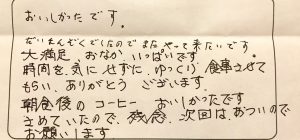 おいしかったです。
だいまんぞくでしたので またやって来たいです
大満足、おなかいっぱいです。
時間を気にせずに、ゆっくり食事させて
もらい、ありがとうございます。
朝食後のコーヒーおいしかったです
さめていたので、残念、次回はあついので
お願いします